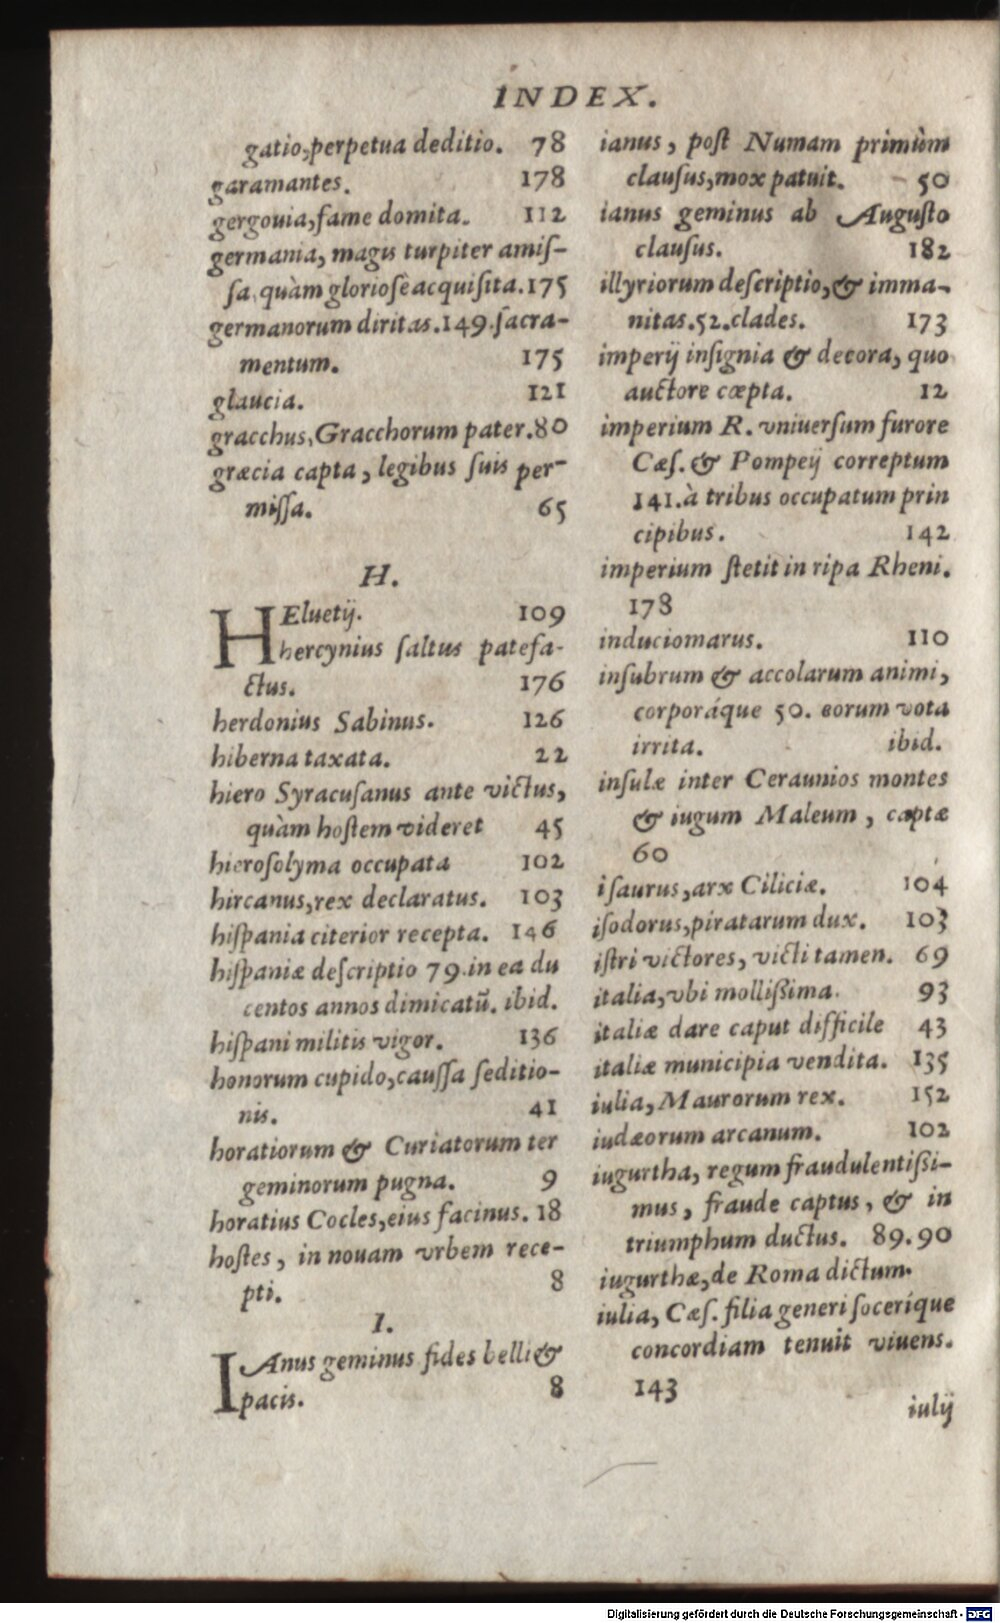 INDEX.
gatio,perpetua deditio. 78
garamantes. 178
gergouia,fame domita. 112
germania, magis turpiter amiſ-
ſa, quàm glorioſè acquiſita. 175
germanorum diritas.149.ſacra-
mentum. 175
glaucia. 121
gracchus, Gracchorum pater.80
græcia capta, legibus ſuis per-
miſſa. 65
H.
HEluetij. 109
hercynius ſaltus patefa-
ctus. 176
herdonius Sabinus. 126
hiberna taxata. 22
hiero Syracuſanus ante victus,
quàm hoſtem videret 45
hieroſolyma occupata 102
hircanus,rex declaratus. 103
hiſpania citerior recepta. 146
hiſpaniæ deſcriptio 79.in ea du
centos annos dimicatū. ibid.
hiſpani militis vigor. 136
honorum cupido,cauſſa ſeditio-
nis. 41
horatiorum & Curiatorum ter
geminorum pugna. 9
horatius Cocles,eius facinus. 18
hoſtes, in nouam vrbem rece-
pti. 8
I.
IAnus geminus fides belli &
pacis. 8
ianus, poſt Numam primùm
clauſus,mox patuit. 50
ianus geminus ab Auguſto
clauſus. 182
illyriorum deſcriptio,& imma-
nitas.52.clades. 173
imperij inſignia & decora, quo
auctore cœpta. 12
imperium R. vniuerſum furore
Cæſ. & Pompeij correptum
141.à tribus occupatum prin
cipibus. 142
imperium ſtetit in ripa Rheni.
178
induciomarus. 110
inſubrum & accolarum animi,
corporáque 50. eorum vota
irrita. ibid.
inſulæ inter Ceraunios montes
& iugum Maleum, captæ
60
iſaurus,arx Ciliciæ. 104
iſodorus,piratarum dux. 103
iſtri victores, victi tamen. 69
italia,vbi molliſsima. 93
italiæ dare caput difficile 43
italiæ municipia vendita. 135
iulia, Maurorum rex. 152
iudæorum arcanum. 102
iugurtha, regum fraudulentiſsi-
mus, fraude captus, & in
triumphum ductus. 89.90
iugurthæ,de Roma dictum.
iulia, Cæſ. filia generi ſoceríque
concordiam tenuit viuens.
143
iulij
Digitalisierung gefördert durch die Deutsche Forschungsgemeinschaft - DFG